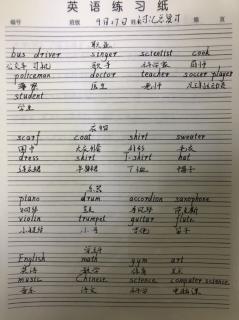 英语练习纸
编号 班级 9月17日 姓名 词汇总复习 编 页
职业
bus driver singer scientist cook
公交车司机 歌手 科学家 厨师
policeman doctor teacher soccer player
警察 医生 老师 足球运动员
student
学生
衣物
scarf coat shirt sweater
围巾 毛衣
dress skirt T-shirt hat
连衣裙 半身裙 T恤 帽子
乐器
piano drum accordion saxophone
钢琴 鼓 手风琴 萨克斯
violin trumpet guitar flute
小提琴 小号 吉他 笛子
English math gym art
英语 数学 体育 美术
music Chinese science computer science
音乐 语文 科学 电脑课